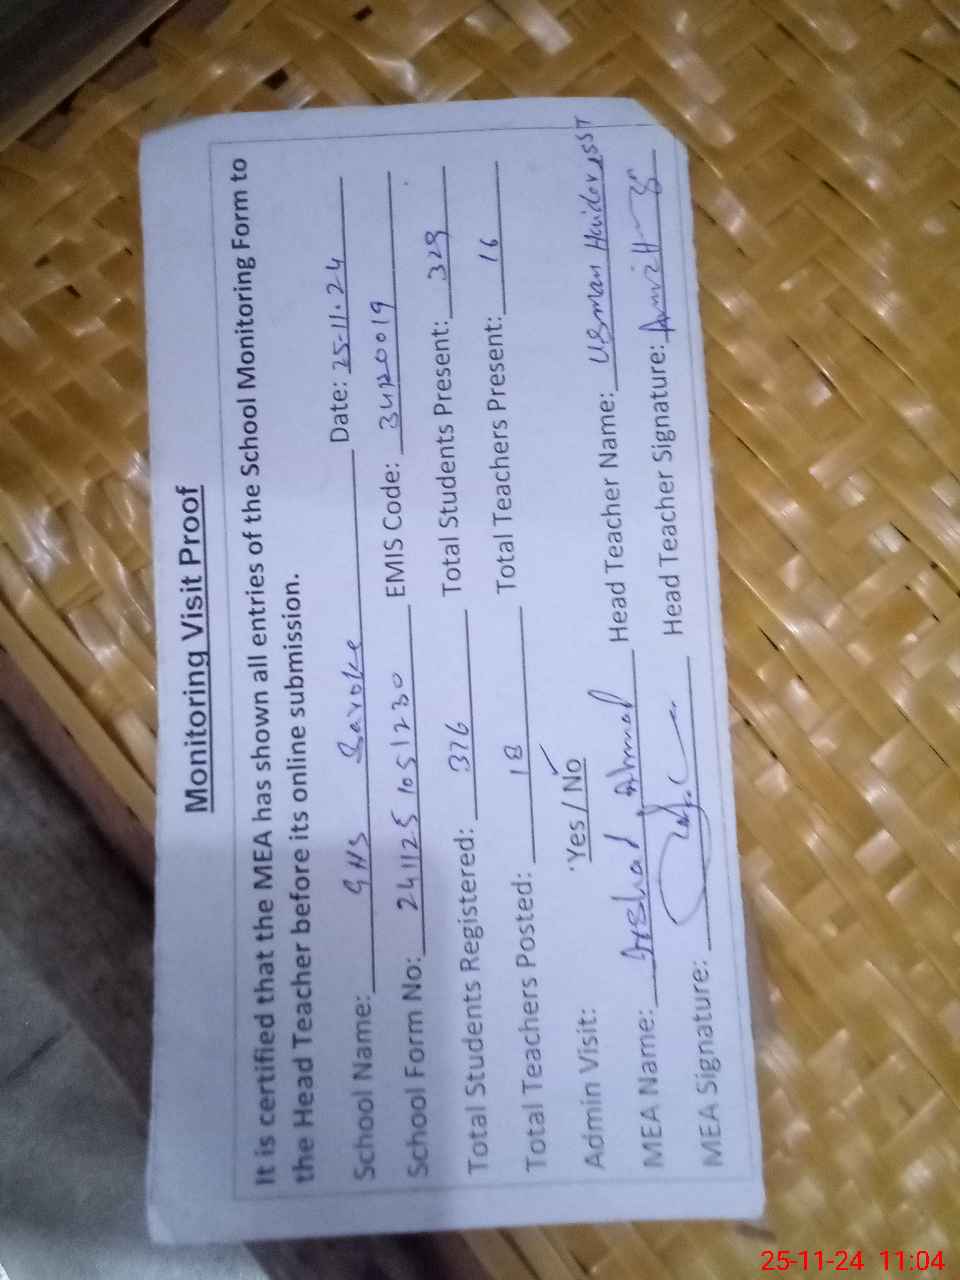 Monitoring Visit Proof
It is certified that the MEA has shown all entries of the School Monitoring Form to
the Head Teacher before its online submission.
School Name: GHS Saroke Date: 25-11-24
School Form No: 241125 1051230 EMIS Code: 34120019
Total Students Registered: 376 Total Students Present: 329
Total Teachers Posted: 18 Total Teachers Present: 16
Admin Visit: Yes / No
MEA Name: Arshad Ahmad Head Teacher Name: Usman Haider, SST
MEA Signature: Head Teacher Signature:
25-11-24 11:04